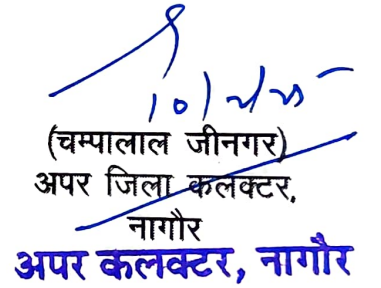 (चम्पालाल जीनगर)
अपर जिला कलक्टर,
नागौर
अपर कलक्टर, नागौर